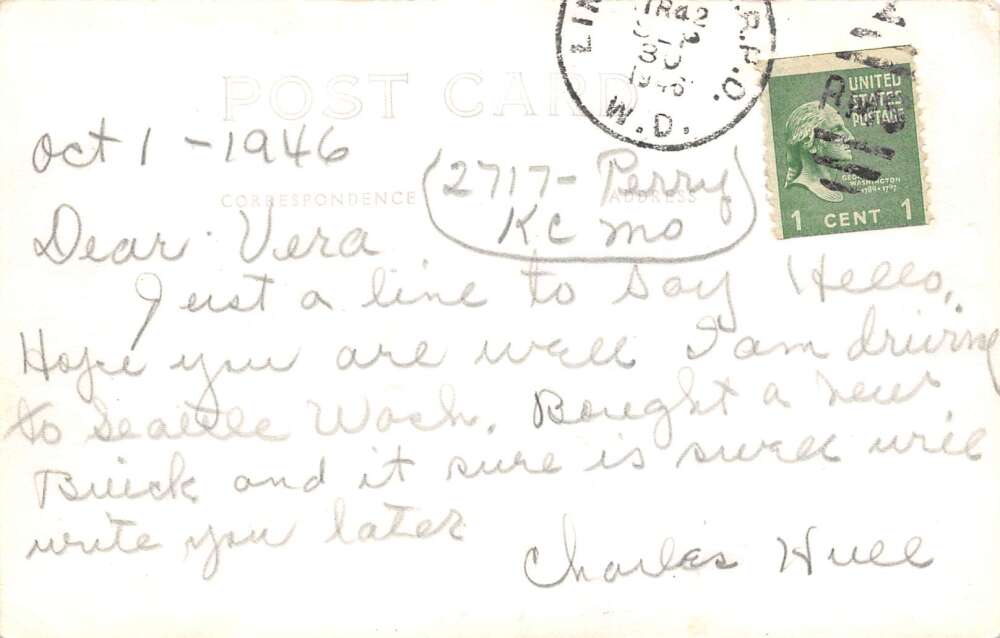 POST CARD
CORRESPONDENCE
ADDRESS
R.P.O.
TR 42
30
1946
W.D.
UNITED
STATES
POSTAGE
GEORGE
WASHINGTON
1789-1797
1 CENT 1
Oct 1 - 1946
(2717 - Perry
KC Mo
Dear Vera
Just a line to say Hello,
Hope you are well I am driving
to Seattle Wash. Bought a new
Buick and it sure is swell will
write you later
Charles Hull